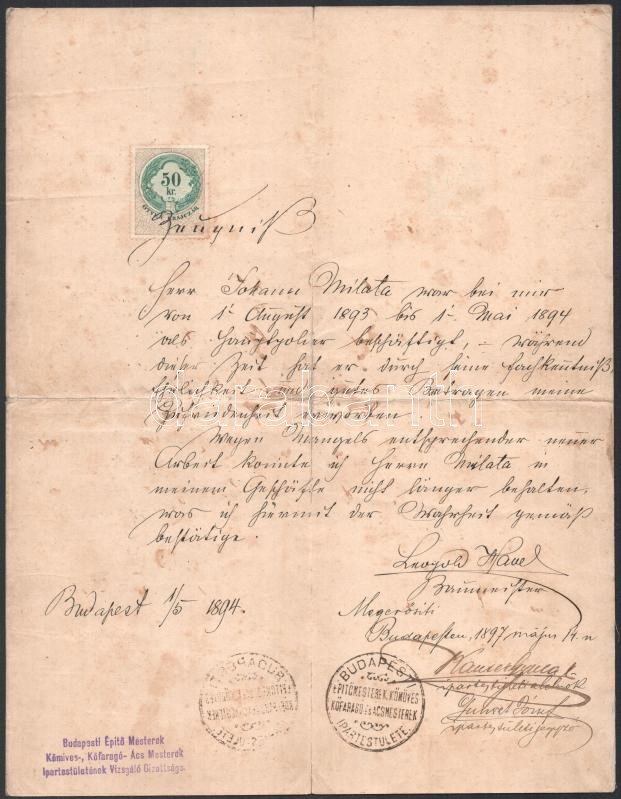 50
kr.
Zeugniß
Herr Johann Milata war bei mir
von 1t August 1893 bis 1t Mai 1894
als Hauptpolier beschäftigt, – während
dieser Zeit hat er durch seine Fachkentniß,
Ehrlichkeit und gutes Betragen meine
Zufriedenheit erworben
Wegen Mangels entsprechender neuer
Arbeit konnte ich Herrn Milata in
meinem Geschäfte nicht länger behalten,
was ich hiermit der Wahrheit gemäß
bestätige.
Leopold Havel
Baumeister
Budapest 1/5 1894.
Megerősiti
Budapesten, 1897 május 14.n
ipartestületi elnök
József
ipartestületi jegyző
BUDAPESTI
ÉPITŐMESTEREK, KŐMŰVES
KŐFARAGÓ ÉS ÁCSMESTEREK
IPARTESTÜLETE.
Budapesti Épitő Mesterek
Kőmives-, Kőfaragó- Ács Mesterek
Ipartestületének Vizsgáló Bizottsága.
darabanth